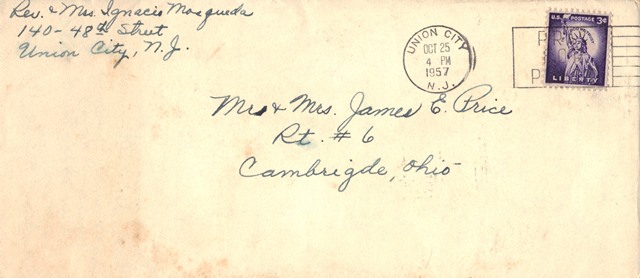 Rev. & Mrs. Ignacio Mosqueda
140-48th Street
Union City, N.J.
UNION CITY
OCT 25
4 PM
1957
N.J.
U.S. POSTAGE 3¢
LIBERTY
Mr & Mrs. James E. Price
Rt. # 6
Cambrigde, Ohio